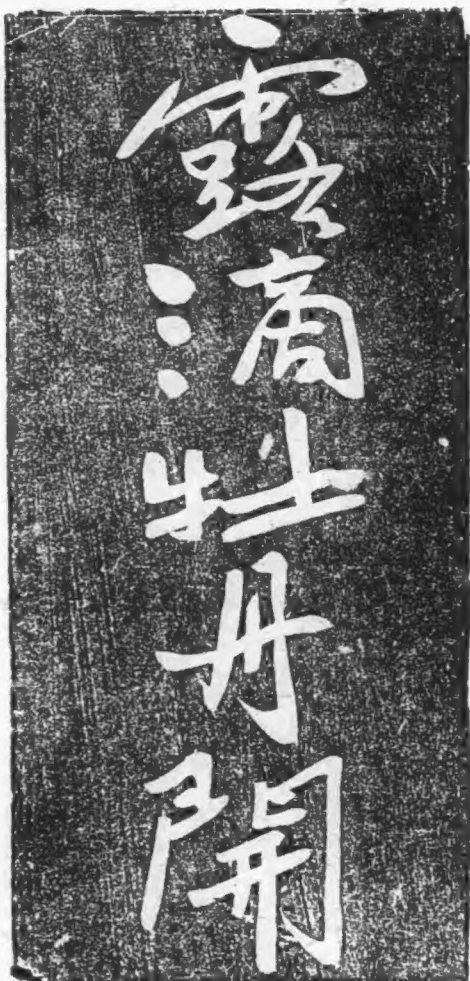 露滴牡丹開